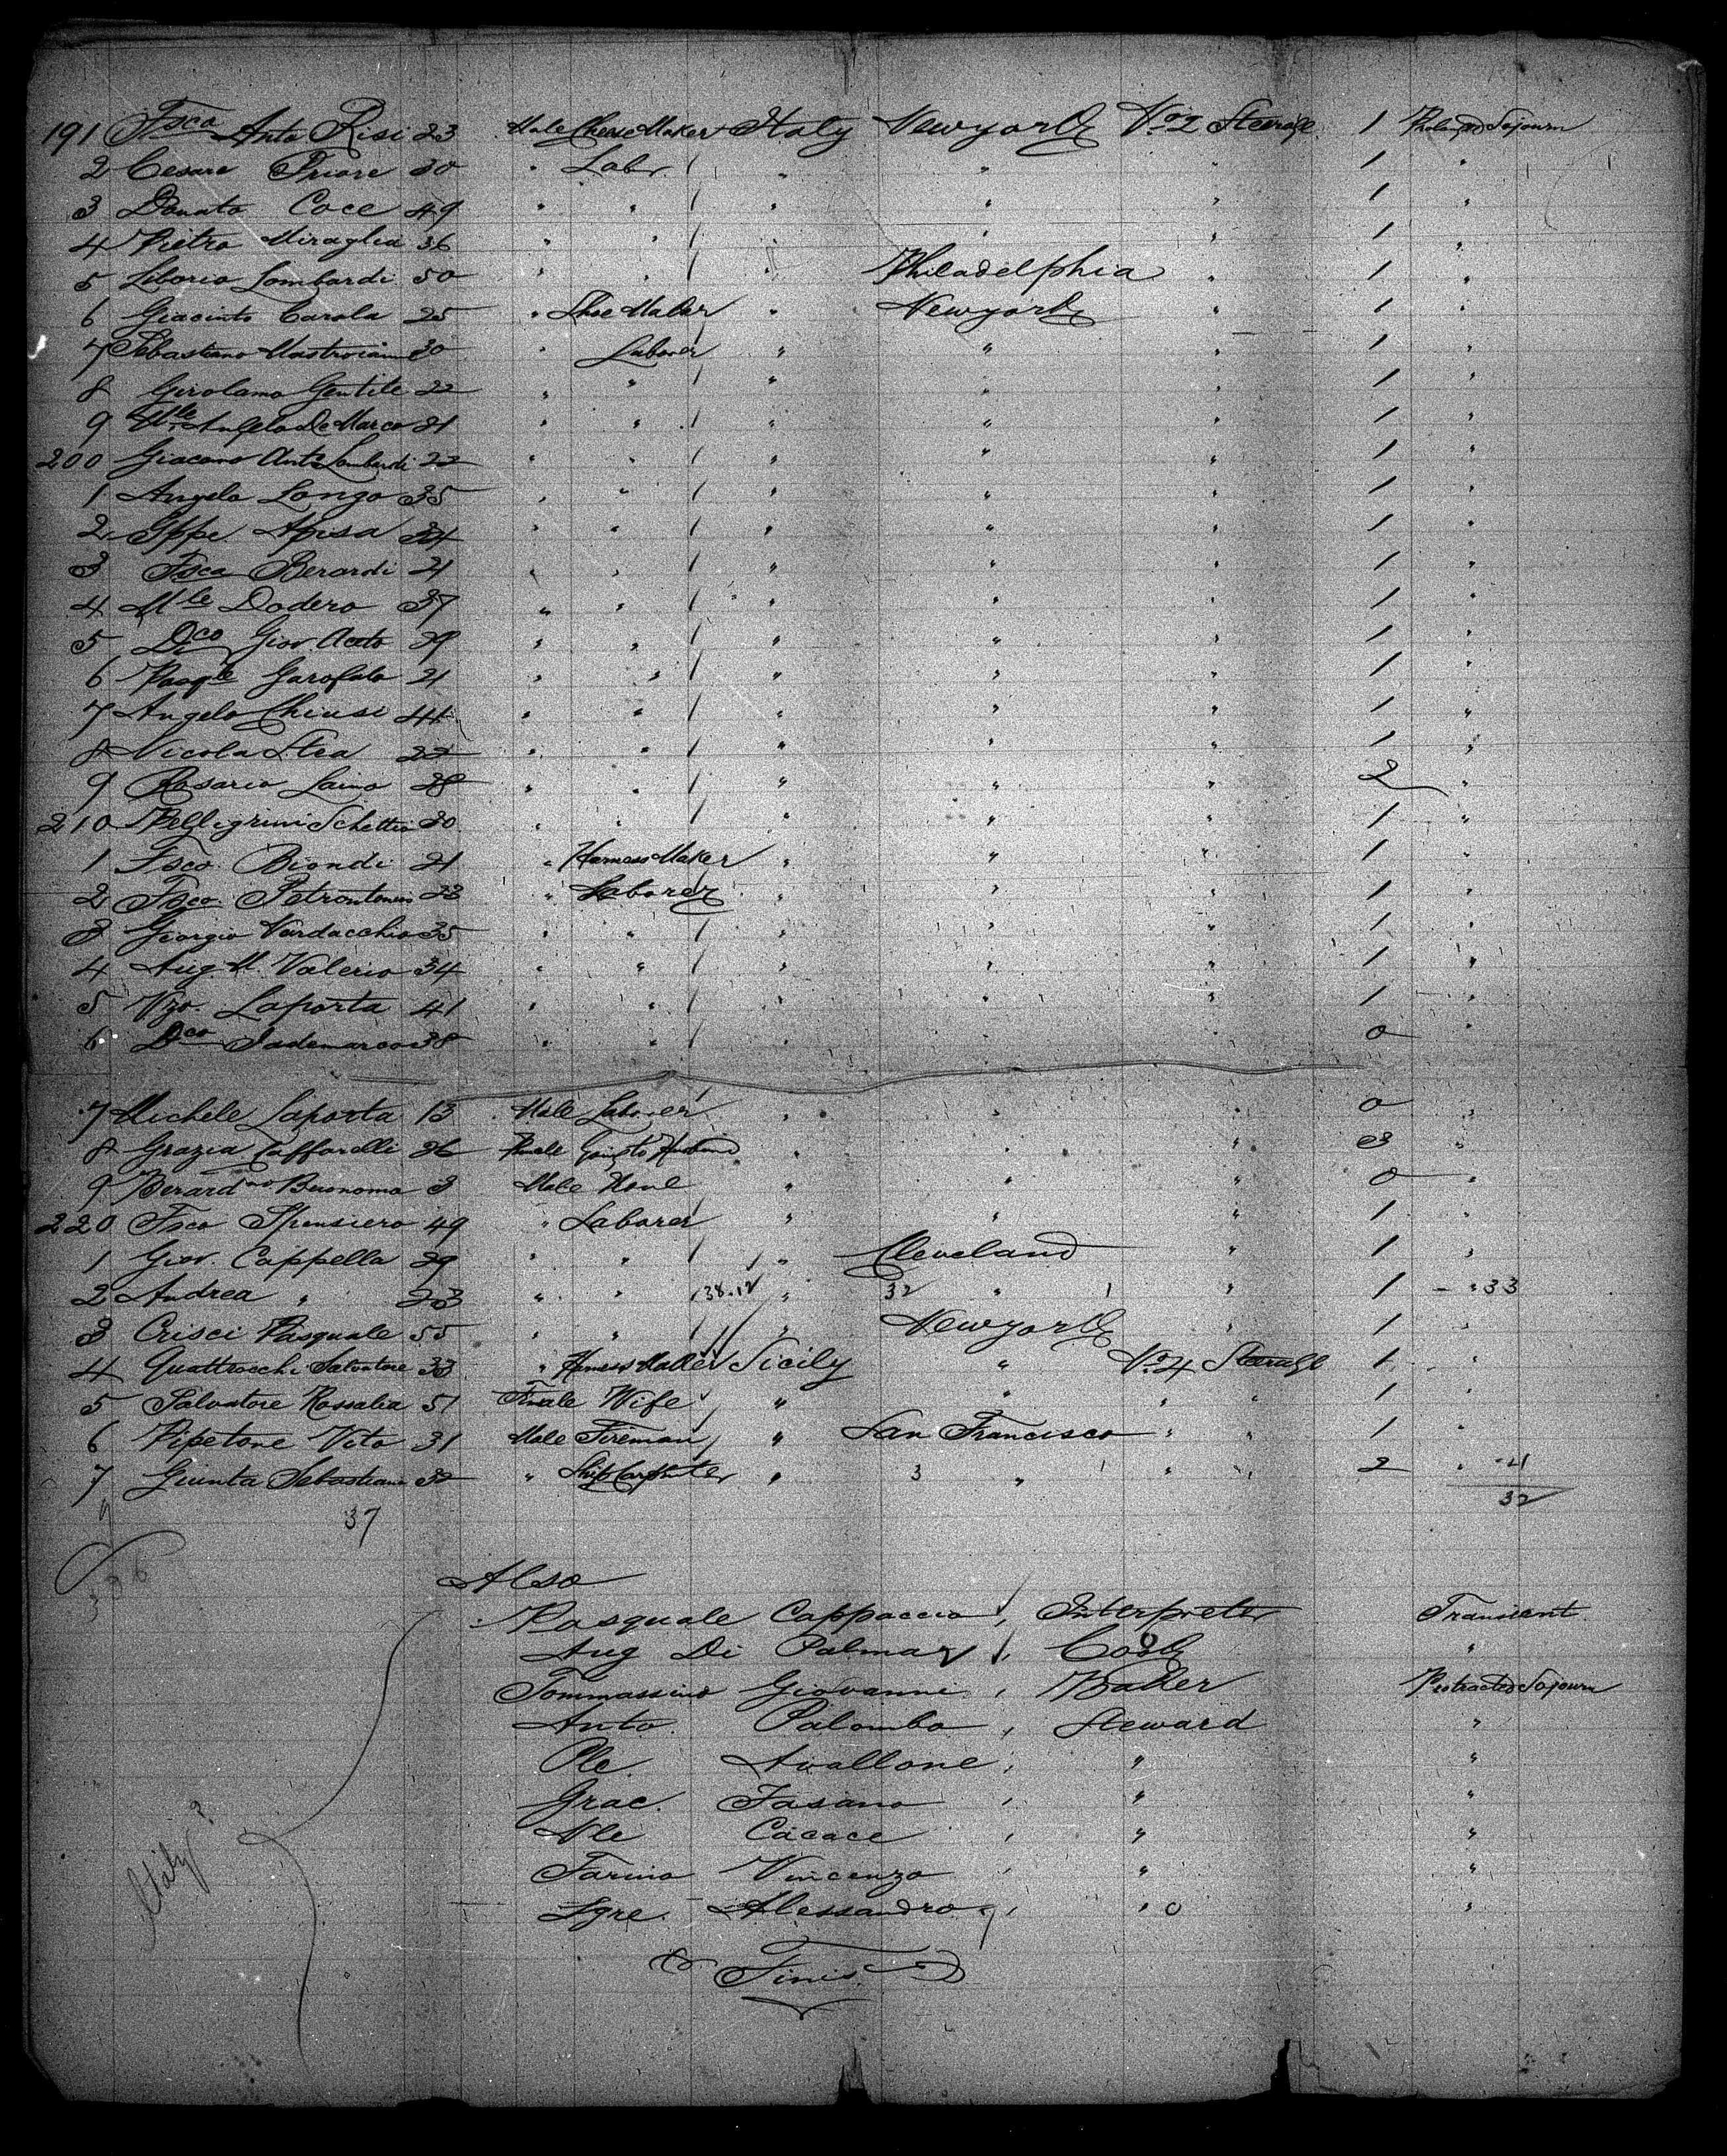 191 Fsco Anto Risi 23 Male Cheese Maker Italy Newyork No 2 Steerage 1 Prolonged Sojourn
2 Cesare Priore 30 " Labr. / " " " 1 "
3 Donato Coce 49 " " / " " " 1 "
4 Pietro Miraglia 36 " " / " " " 1 "
5 Liborio Lombardi 50 " " / " Philadelphia " 1 "
6 Giacinto Carola 25 " Shoe Maker " Newyork " 1 "
7 Sebastiano Mastroianni 30 " Laborer " " " 1 "
8 Girolamo Gentile 22 " " / " " " 1 "
9 Mle Angelo De Marco 21 " " / " " " 1 "
200 Giacomo Anto Lombardi 22 " " / " " " 1 "
1 Angelo Longo 35 " " / " " " 1 "
2 Gppe. Apisa 34 " " / " " " 1 "
3 Fsca Berardi 21 " " / " " " 1 "
4 Mle Dodero 37 " " / " " " 1 "
5 Dco Giov. Aceto 29 " " / " " " 1 "
6 Pasqle Garofalo 21 " " / " " " 1 "
7 Angelo Chiusi 44 " " / " " " 1 "
8 Nicola Stea 22 " " / " " " 1 "
9 Rosario Laino 28 " " / " " " 2 "
210 Pellegrini Schettin 30 " " / " " " 1 "
1 Fsco. Biondi 21 " Harness Maker " " " 1 "
2 Fsco. Petrontonio 23 " Laborer " " " 1 "
3 Giorgio Vardacchio 35 " " / " " " 1 "
4 Aug. M. Valerio 34 " " / " " " 1 "
5 Vzo. Laporta 41 " " / " " " 1 "
6 Dco Sademarco 38 " " / " " " 0 "
7 Michele Laporta 13 Male Laborer " " " 0 "
8 Grazia Caffarelli 26 Female Going to Husband " " " 3 "
9 Berardno Buonomo 3 Male None " " " 0 "
220 Fsco Spensiero 49 " Laborer " " " 1 "
1 Giov. Cappella 29 " " / " Cleveland " 1 "
2 Andrea " 23 " " 38.12 " 32 " 1 " 1 - " 33
3 Crisci Pasquale 55 " " / " Newyork " 1 "
4 Quattrocchi Salvatore 33 " Harness Maker Sicily " No 4 Steerage 1 "
5 Salvatore Rossalia 51 Female Wife " " " " 1 "
6 Pipetone Vito 31 Male Fireman " San Francisco " " 1 "
7 Giunta Sebastiano 32 " Ship Carpenter " 3 " 1 " " 2 " -1
32
9
37
306
Also
Pasquale Cappaccio, Interpreter Transient.
Aug Di Palma, Cook "
Tommassino Giovanni, Baker Protracted Sojourn
Anto. Palomba, Steward "
Ple. Avallone, " "
Grac. Fasano, " "
Nle Cacace, " "
Farino Vincenzo, " "
Sgre. Alessandro 9, " 0 "
Italy?
Finis.